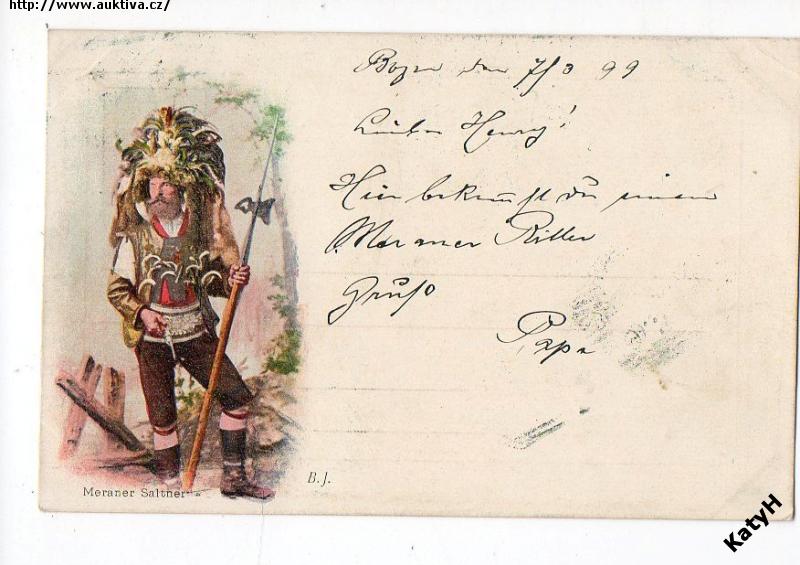 http://www.auktiva.cz/
Bozen den 7/3 99
Lieber Henry!
Hier bekommst du einen
Meraner Ritter
Gruß
Papa
B.J.
Meraner Saltner
KatyH